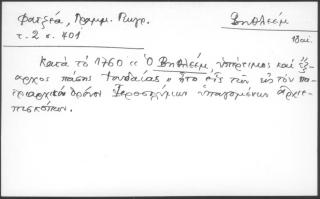 Φατζέα, Γραμμ. Πωγρ. Βηθλεέμ
τ. 2 σ. 401 18 αἰ.
Κατὰ τὸ 1760 « Ὁ Βηθλεέμ ὑπέρτιμος καὶ ἔξ-
αρχος πάσης Ἰουδαίας » ἦτο εἷς τῶν εἰς τὸν πα-
τριαρχικὸν θρόνον Ἱεροσολύμων ὑπαγομένων ἀρχιε-
πισκόπων.